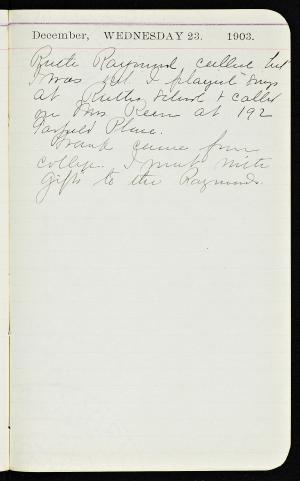 December, WEDNESDAY 23. 1903.
Ruth Raymond called but
I was out. I played songs
at Ruth's school & called
on Mrs Keen at 192
Garfield Place.
Frank came from
college. I went with
gifts to the Raymonds.